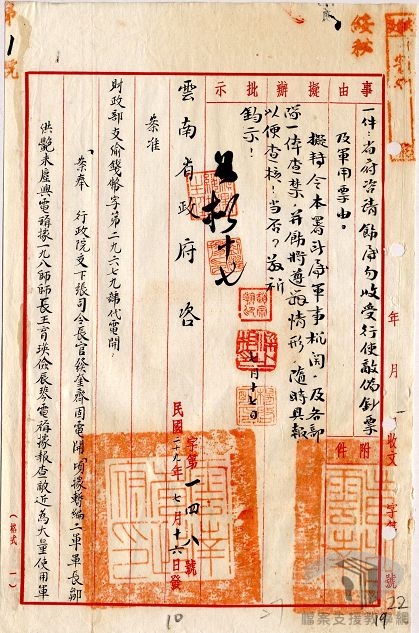 綏秘
事由
擬辦
批示
一件：省府咨請飭屬勿收受行使敵偽鈔票
及軍用票由。
擬轉令本署所屬軍事機關及各部
隊一體查禁，并飭將遵辦情形，隨時具報
以便查核！當否？敬祈
鈞示！
七月十七日
附件
年 月
收文 字 號
雲南省政府咨
字第一四八號
民國二九年七月十六日發
案准
財政部支渝錢幣字第二九六七九號代電開：
「案奉 行政院交下張司令長官發奎齊固電開『頃據暫編二軍軍長鄒
洪艷未虛興電稱據一九八師師長王育瑛儉辰琴電稱據報查敵近為大量使用軍
（格式一）
10
19
22
檔案支援教學網